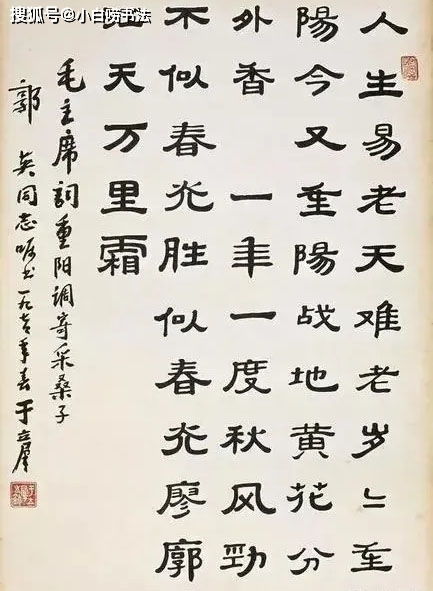 搜狐号@小白唠书法
人生易老天难老岁々重
陽今又重陽战地黄花分
外香 一年一度秋风劲
不似春光胜似春光廖廓
江天万里霜
毛主席詞重阳調寄采桑子
郭 英同志嘱书 一九七年春 于立群